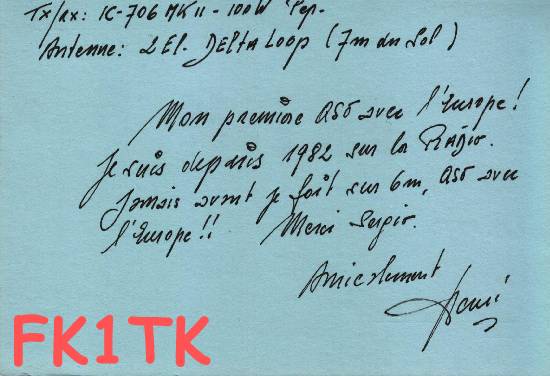 Tx/Rx: IC-706 MKII - 100W Pep.
Antenne: 2 El. DELTA LOOP (7m du Sol)
Mon première QSO avec l'Europe!
Je suis depuis 1982 sur la Radio.
Jamais avant je fait sur 6m, QSO avec
l'Europe!! Merci Sergio.
Amicalement
Henri
FK1TK